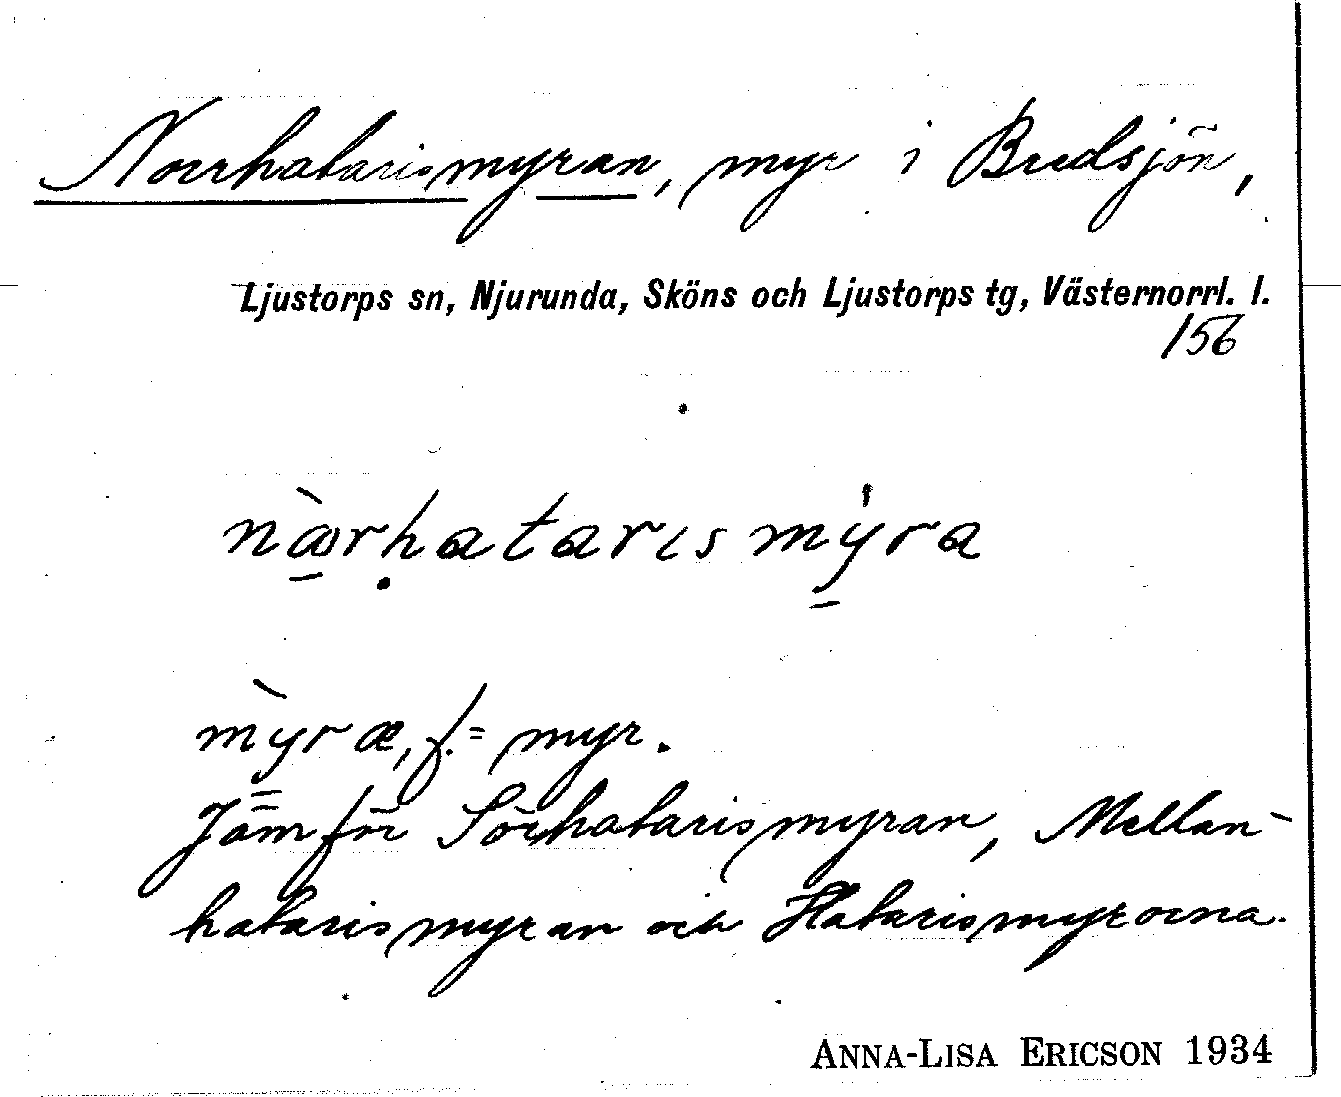 Norrhatarismyran, myr i Bredsjön,
Ljustorps sn, Njurunda, Sköns och Ljustorps tg, Västernorrl. l.
156
hatarismy̱ra
my̱ræ, f. = myr.
Jämför Sörhatarismyran, Mellan-
hatarismyran och Hatarismyrorna.
ANNA-LISA ERICSON 1934